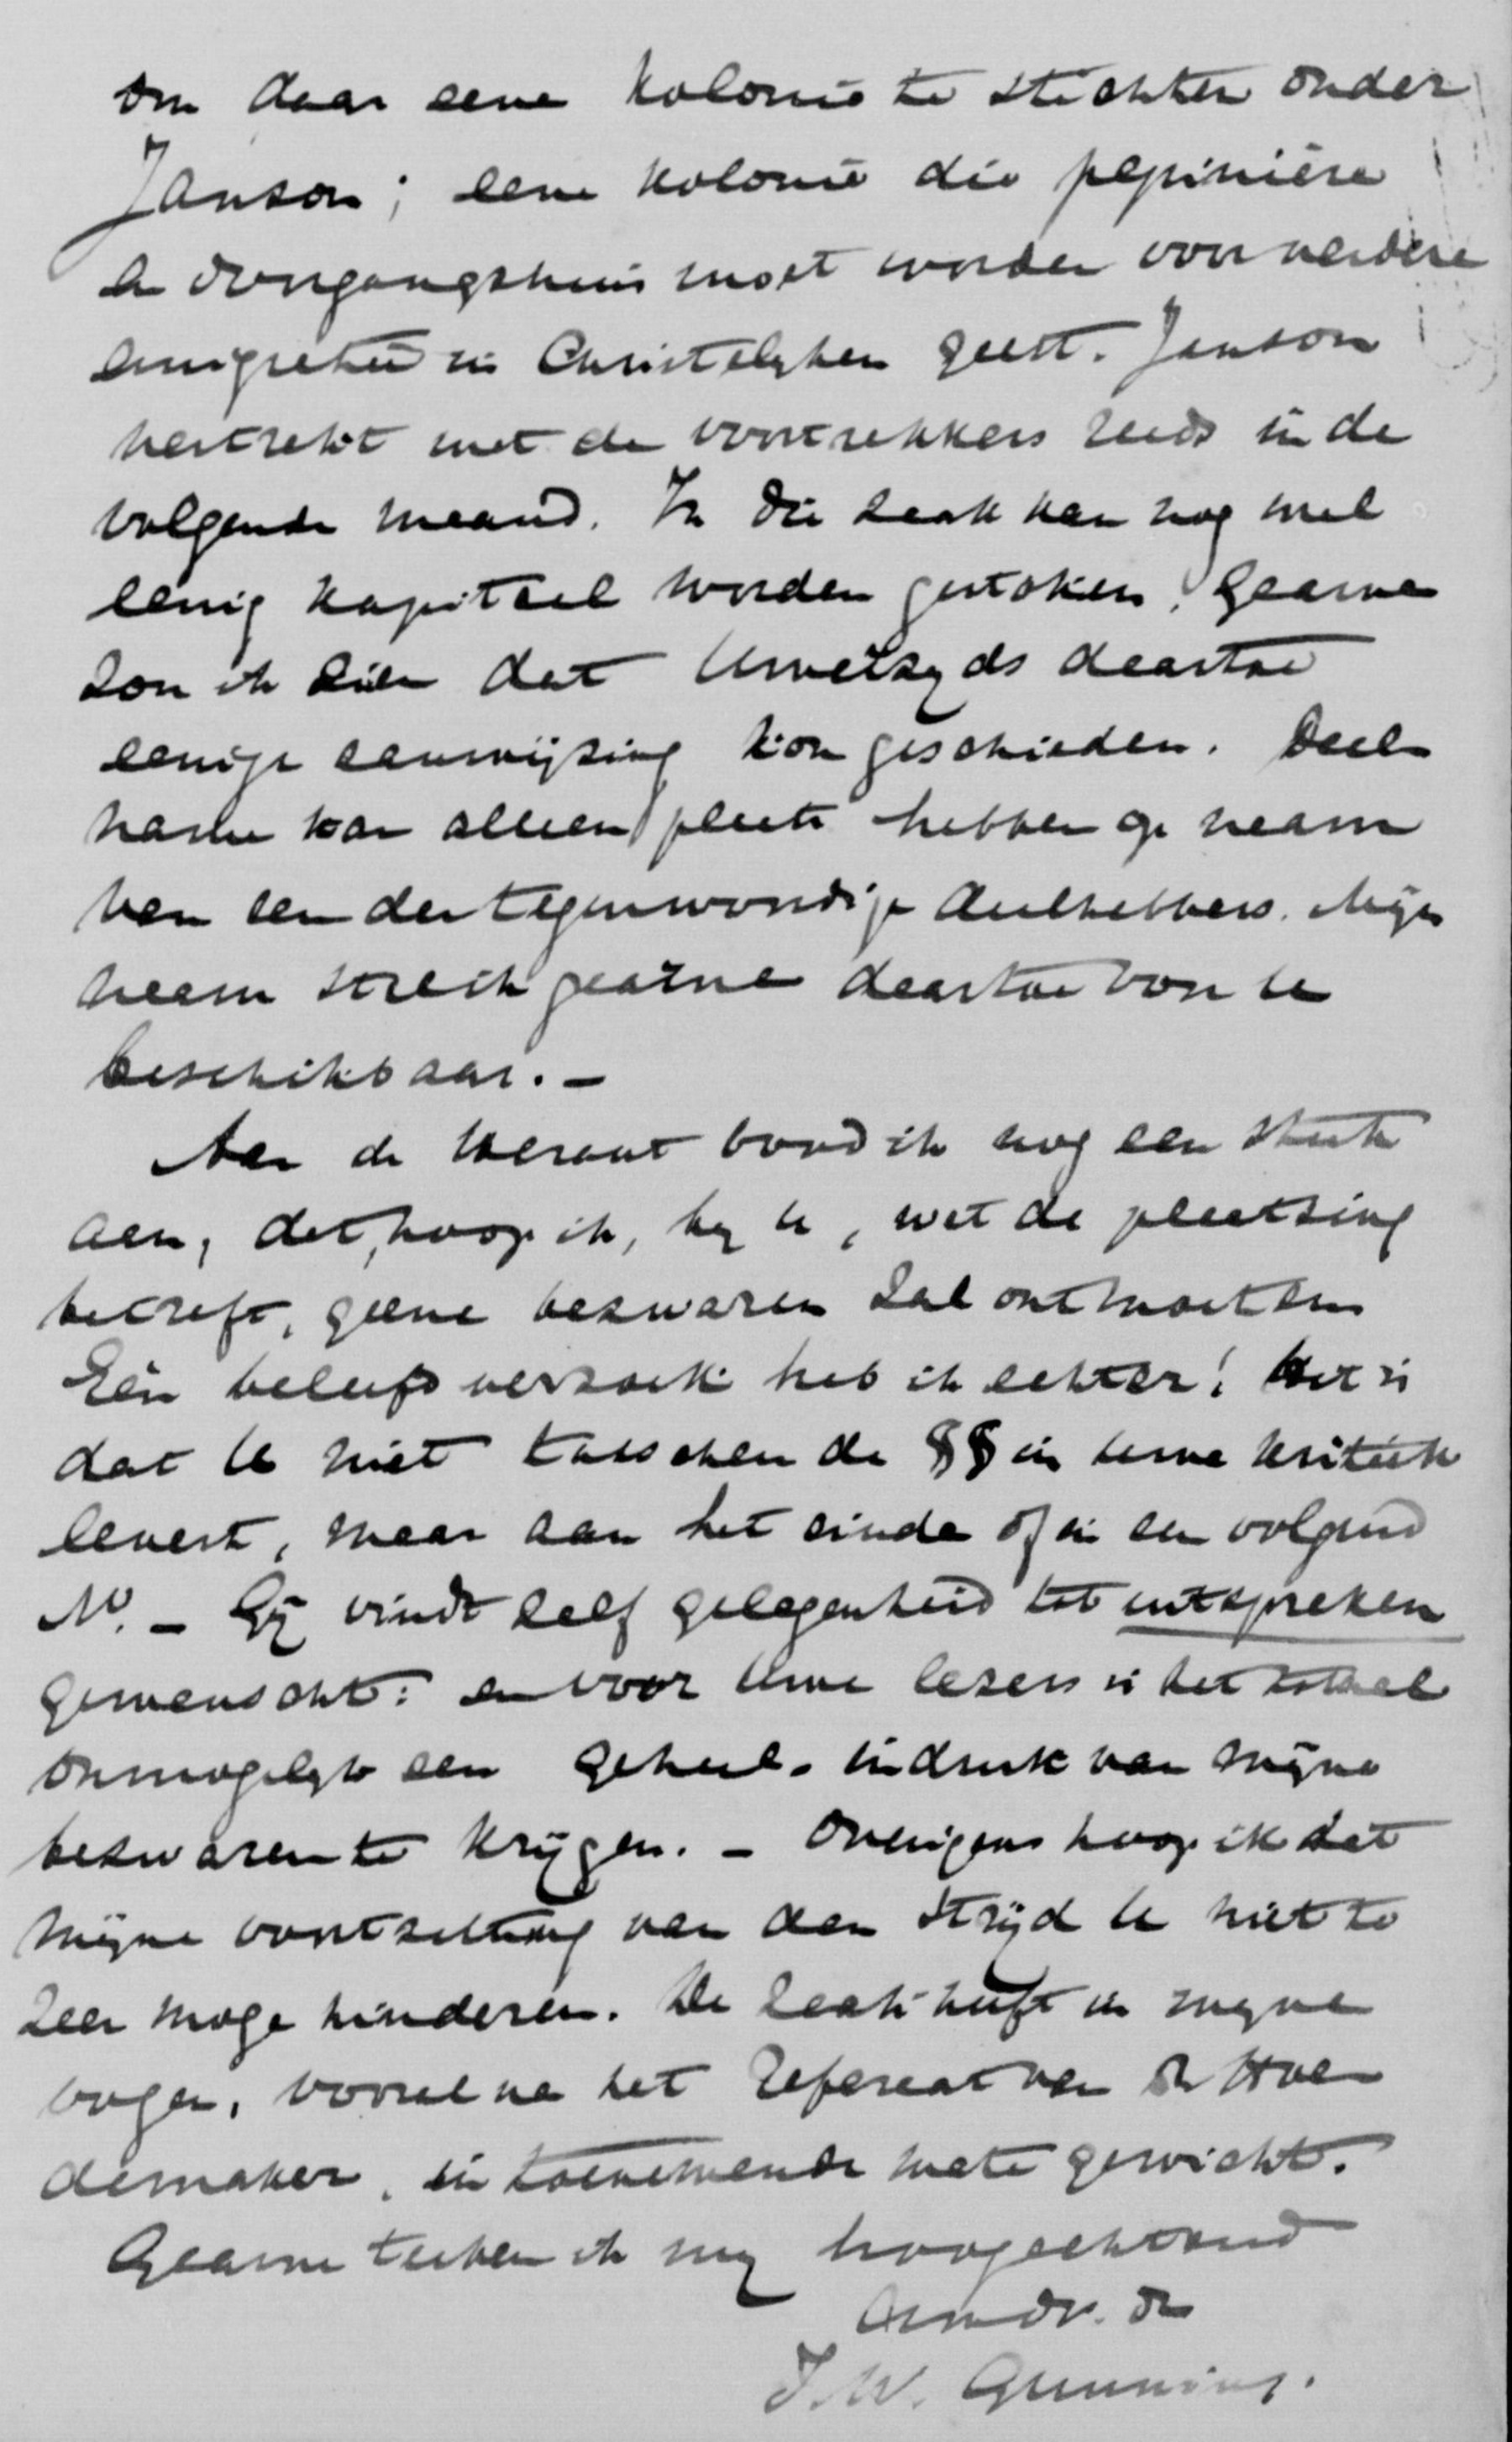 om daar eene kolonie te stichten onder
Janson; eene kolonie die pepinière
en doorgangshuis moet worden voor verdere
emigratie in Christelyken geest. Janson
vertrekt met de voortrekkers reeds in de
volgende maand. In die zaak kan nog wel
eenig kapitaal worden gestoken. Gaarne
zou ik zien dat Uwerzyds daartoe
eenige aanwijzing kon geschieden. Deel
name kan alleen plaats hebben op naam
van een der tegenwoordige deelhebbers. Mijn
naam stel ik gaarne daartoe voor U
beschikbaar. —
Aan de Heraut bood ik nog een stuk
aan, dat, hoop ik, by U, wat de plaatsing
betreft, geene bezwaren zal ontmoeten
Eén beleefd verzoek heb ik echter! Het is
dat U niet tusschen de §§ in Uwe kritiek
levert, maar aan het einde of in een volgend
No. — Gij vindt zelf gelegenheid tot uitspreken
gewenscht: en voor Uwe lezers is het totaal
onmogelyk een geheel indruk van mijne
bezwaren te krijgen. — Overigens hoop ik dat
mijne voortzetting van den strijd U niet te
zeer moge hinderen. De zaak heeft in myne
oogen, vooral na het Referaat van Dr Hoe
demaker, in toenemende mate gewicht.
Gaarne teeken ik my hoogachtend
Uw dv. dr
J.W. Gunning.